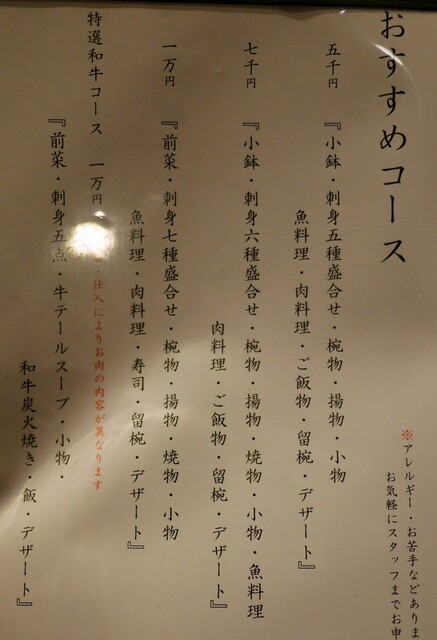 おすすめコース
※アレルギー・お苦手などありま
お気軽にスタッフまでお申
五千円 『小鉢・刺身五種盛合せ・椀物・揚物・小物
魚料理・肉料理・ご飯物・留椀・デザート』
七千円 『小鉢・刺身六種盛合せ・椀物・揚物・焼物・小物・魚料理
肉料理・ご飯物・留椀・デザート』
一万円 『前菜・刺身七種盛合せ・椀物・揚物・焼物・小物
魚料理・肉料理・寿司・留椀・デザート』
特選和牛コース 一万円 ・仕入によりお肉の内容が異なります
『前菜・刺身五点・牛テールスープ・小物・
和牛炭火焼き・飯・デザート』